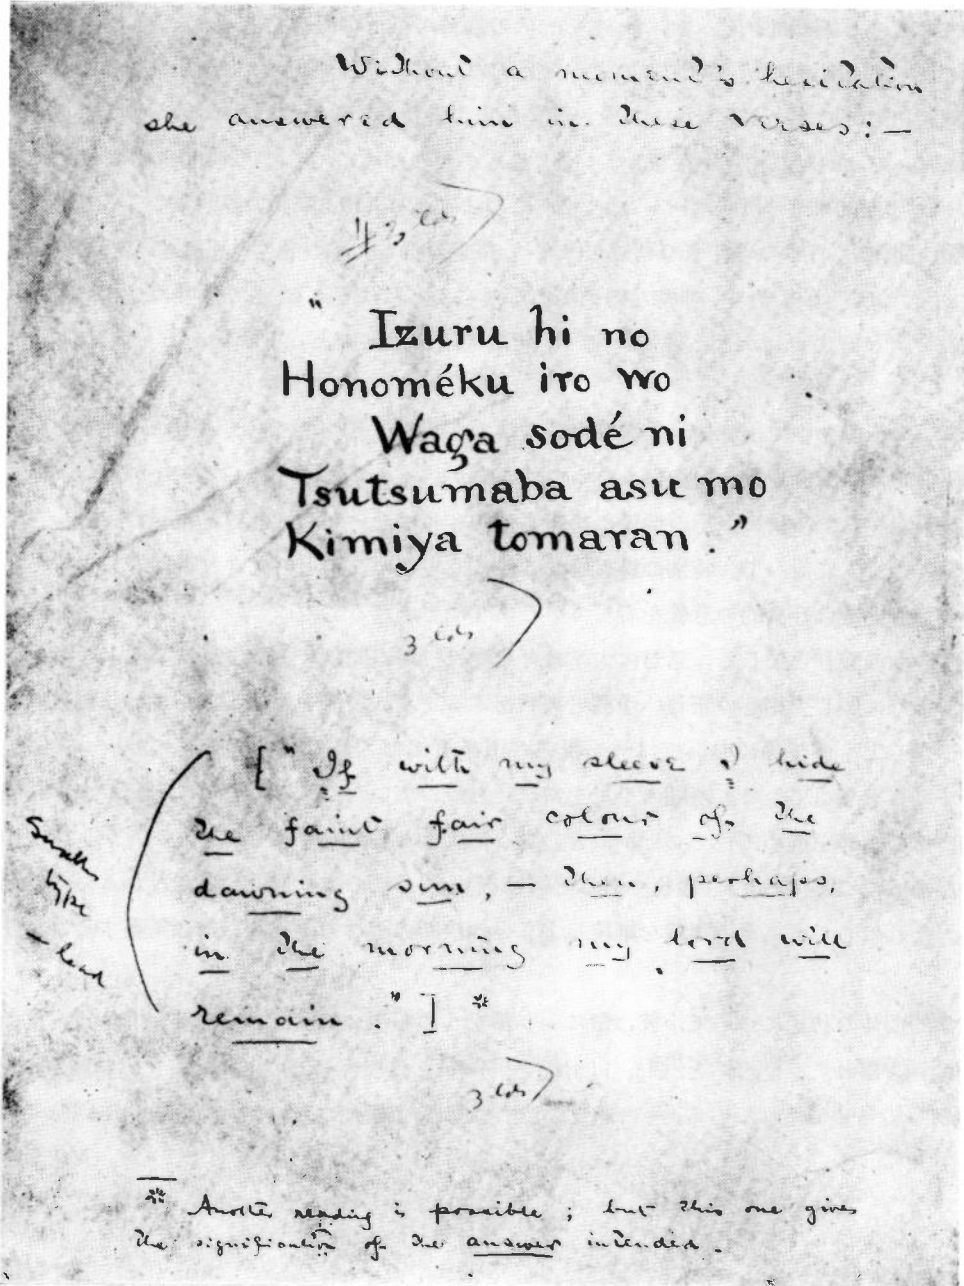 Without a moment's hesitation
she answered him in these verses:—
#3 lds
"Izuru hi no
Honoméku iro wo
Waga sodé ni
Tsutsumaba asu mo
Kimiya tomaran."
3 lds
["If with my sleeve I hide
the faint fair colour of the
dawning sun, — then, perhaps,
in the morning my lord will
remain."] *
Small
type
— lead
3 lds
* Another reading is possible; but this one gives
the signification of the answer intended.